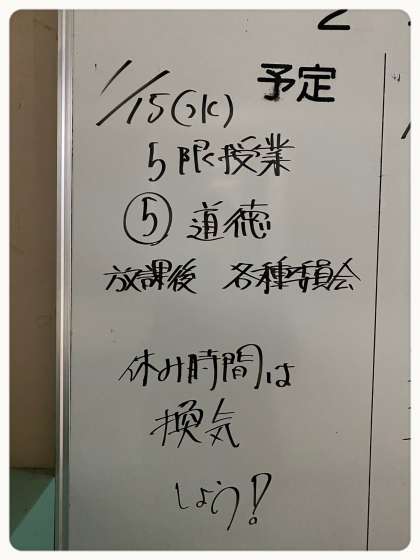 予定
1/15(水)
5限授業
⑤ 道徳
放課後 各種委員会
休み時間は
換気
しょう!